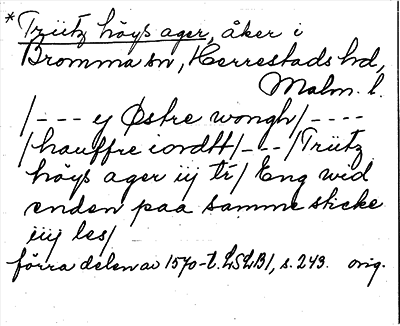 * Trütz höys ager, åker i
Bromma sn, Herrestads hd,
Malm. l.
/--- ej Østre wongh/----
/hauffre iordtt/---/Trütz
höys ager iij tr/ Eng wid
enden paa samme sticke
iiij les/
förra delen av 1570-t. LSLB1, s. 243. orig.